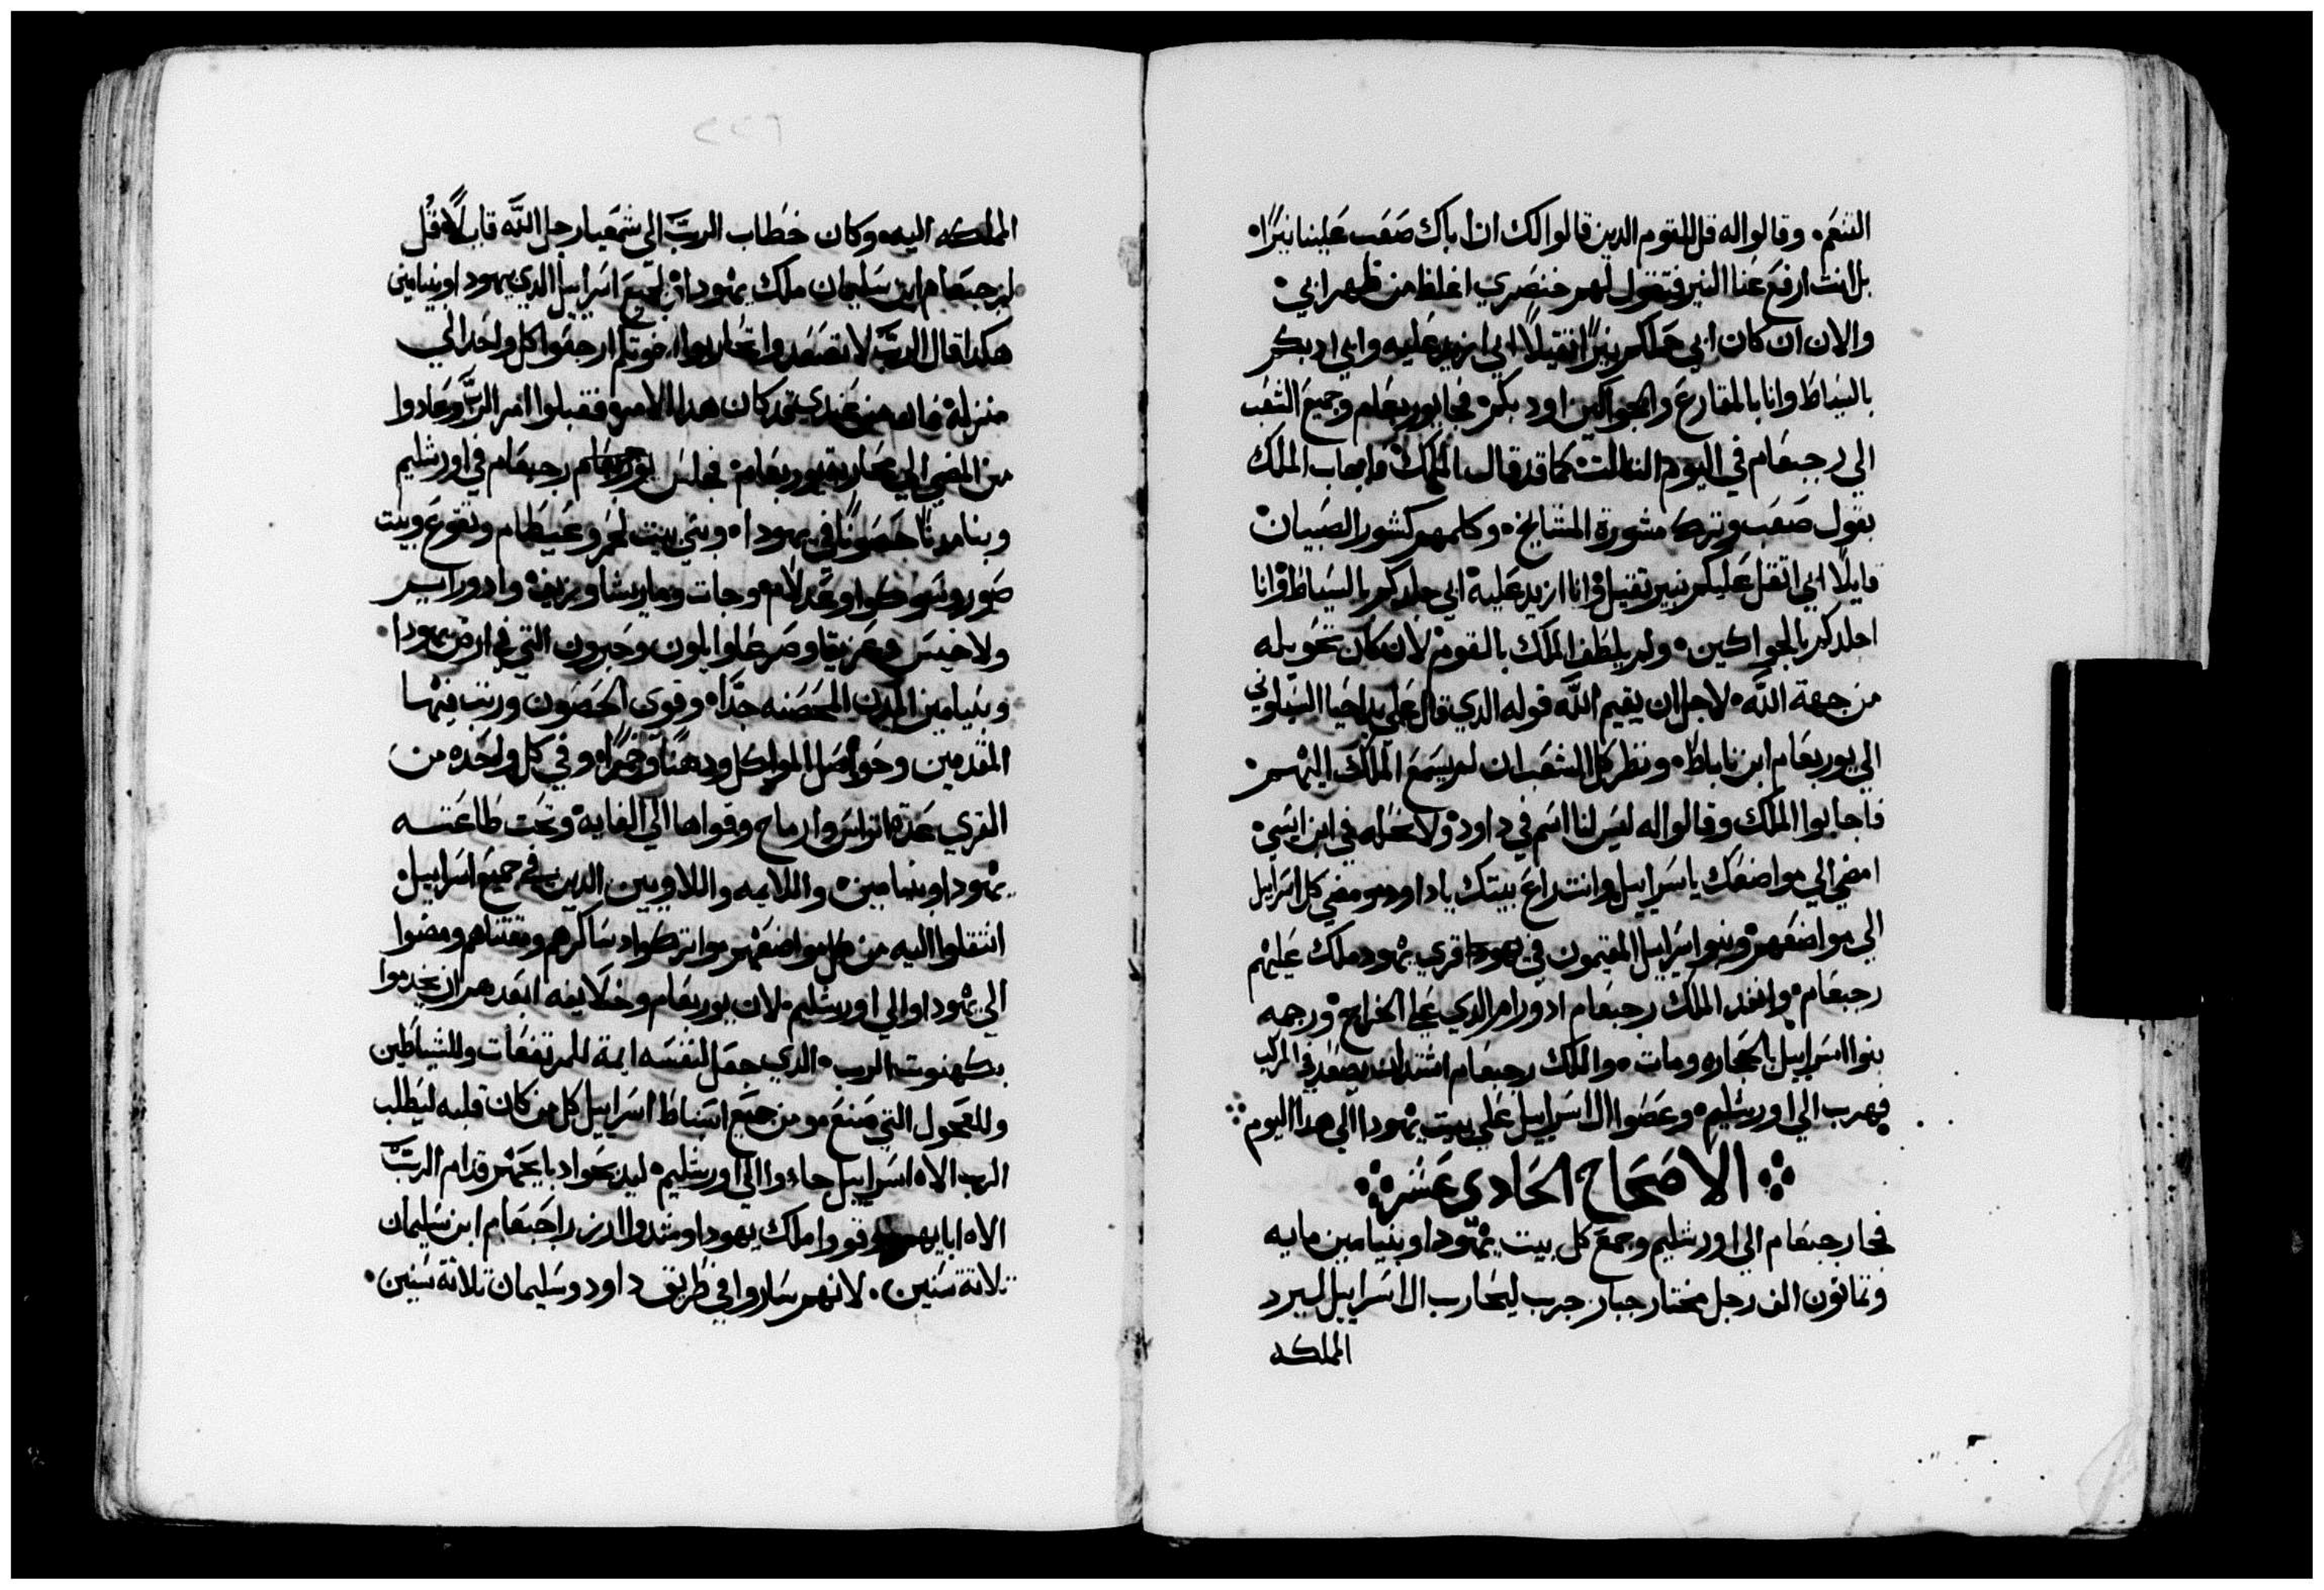 التنعم. وقالوا له قل للقوم الدين قالوا لك ان اباك صعب علينا نيرًا.
بل انت ارفع عنا النير فتقول لهم خنصري اغلظ من ظهر ابي.
والان ان كان ابي حملكم نيرًا ثقيلًا اني ازيد عليه وابي ادبكم
بالسياط وانا بالمقارع والجواكين اودبكم. فجا يوربعام وجميع الشعب
الي رجبعام في اليوم التالت كما قد قال الملك. فاجاب الملك
بقول صعب وترك مشورة المشايخ. وكلمهم كشور الصبيان
قايلًا ابي اتقل عليكم بنير تقيل وانا ازيد عليه ابي جلدكم بالسياط وانا
اجلدكم بالجواكين. ولم يلطف الملك بالقوم لان كان تحويله
من جهة الله. لاجل ان يقيم الله قوله الدي قال علي يد احيا السيلوني
الي يوربعام ابن ناباط. ونظر كل الشعب ان لم يسمع الملك اليهم.
فاجابوا الملك وقالوا له ليس لنا اسم في داود ولا نحله في ابن ايسي.
امضي الي مواضعك ياسراييل وانت راع بيتك ياداود ومضي كل اسراييل
الي مواضعهم. وبنوا اسراييل المقيمون في يهودا قري يهود ملك عليهم
رجبعام. وانفد الملك رجبعام ادورام الدي علي الخراج. ورجمه
بنوا اسراييل بالحجاره ومات. والملك رجبعام اشتد ان يصعد في المركب
فهرب الي اورشليم. وعصوا ال اسراييل علي بيت يهودا الي هدا اليوم
الاصحاح الحادي عشر
فجا رجبعام الي اورشليم وجمع كل بيت يهودا وبنيامين مايه
وتمانون الف رجل مختار جبار حرب ليحارب ال اسراييل ليرد
المملكه
المملكه اليه. وكان خطاب الرب الي شمعيا رجل الله قايلًا. قل
لرجبعام ابن سليمان ملك يهودا. ولجميع اسراييل الدي يهودا وبنيامين
هكدا قال الرب لا تصعدوا تحاربوا اخوتكم ارجعوا كل واحد الي
منزله فان من عندي قد كان هدا الامر. فقبلوا امر الرب وعادوا
من المضي الي محاربة يوربعام. فجلس يوربعام رجبعام في اورشليم
وبنا مدنًا حصونًا في يهودا. وبني بيت لحم وعيطام وتقوع وبيت
صور وسوكوا وعدلام. وجات وماريشا وزيف وادورايم
ولاخيس وعزيقا وصرعا وايلون وحبرون التي في ارض يهودا.
وبنيامين المدن المحصنه جدًا. وقوي الحصون ورتب فيها
المقدمين وحواصل المواكل ودهنًا وخمرًا. وفي كل واحده من
القري عدة اتراس وارماح وقواها الي الغايه وتحت طاعته
يهودا وبنيامين. واللايمه واللاويين الدين في جميع اسراييل
انتقلوا اليه من كل مواضعهم. واتركوا دساكرهم ومقتناهم ومضوا
الي يهودا والي اورشليم. لان يوربعام وخلايفه ابعدهم ان يخدموا
بكهنوت الرب. الدي جعل لنفسه ايمة للمرتفعات وللشياطين
وللعجول التي صنع. ومن جميع اسباط اسراييل كل من كان قلبه ليطلب
الرب الاه اسراييل جاءوا الي اورشليم. ليدبحوا دبايحهم قدام الرب
الاه ابايهم وقووا ملك يهودا وشدوا ازر راحبعام ابن سليمان
تلاتة سنين. لانهم ساروا في طريق داود وسليمان تلاتة سنين.